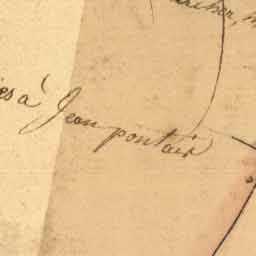 es à Jean pontair